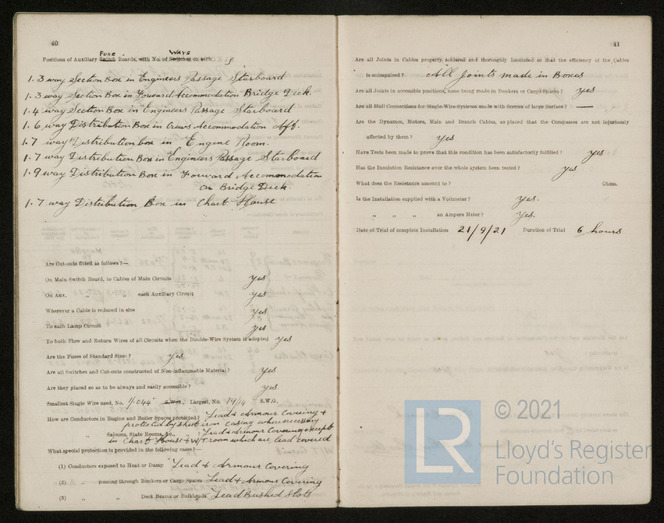 40
Fuse Ways
Positions of Auxiliary Switch Boards, with No. of Switches on each 8
1. 3 way Section Box in Engineers Passage Starboard
1. 3 way Section Box in Forward Accommodation Bridge Deck.
1. 4 way Section Box in Engineers Passage Starboard
1. 6 way Distribution Box in Crews Accommodation Aft.
1. 7 way Distribution box in Engine Room.
1. 7 way Distribution Box in Engineers Passage Starboard
1. 9 way Distribution Box in Forward Accommodation
on Bridge Deck
1. 7 way Distribution Box in Chart House
Are Cut-outs fitted as follows?—
On Main Switch Board, to Cables of Main Circuits yes
On Aux. „ „ each Auxiliary Circuit yes
Wherever a Cable is reduced in size yes
To each Lamp Circuit yes
To both Flow and Return Wires of all Circuits when the Double-Wire System is adopted yes
Are the Fuses of Standard Sizes? yes
Are all Switches and Cut-outs constructed of Non-inflammable Material? yes
Are they placed so as to be always and easily accessible? yes
Smallest Single Wire used, No. 1/.044" S.W.G., Largest, No. 19/14 S.W.G.
How are Conductors in Engine and Boiler Spaces protected? Lead & Armour Covering &
protected by sheet iron casing where necessary
„ Saloons, State Rooms, &c., „ ? Lead & Armour Covering except
in Chart House & W/T room which are lead covered
What special protection is provided in the following cases?—
(1) Conductors exposed to Heat or Damp Lead & Armour Covering
(2) „ passing through Bunkers or Cargo Spaces Lead & Armour Covering
(3) „ „ Deck Beams or Bulkheads Lead Bushed Slots
41
Are all Joints in Cables properly soldered and thoroughly insulated so that the efficiency of the Cables
is unimpaired? All Joints made in Boxes
Are all Joints in accessible positions, none being made in Bunkers or Cargo Spaces? yes
Are all Hull Connections for Single-Wire Systems made with Screws of large Surface? —
Are the Dynamos, Motors, Main and Branch Cables, so placed that the Compasses are not injuriously
affected by them? yes
Have Tests been made to prove that this condition has been satisfactorily fulfilled? yes.
Has the Insulation Resistance over the whole system been tested? yes
What does the Resistance amount to? Ohms.
Is the Installation supplied with a Voltmeter? yes.
„ „ „ an Ampere Meter? yes.
Date of Trial of complete Installation 21/9/21 Duration of Trial 6 hours
LR
© 2021
Lloyd's Register
Foundation